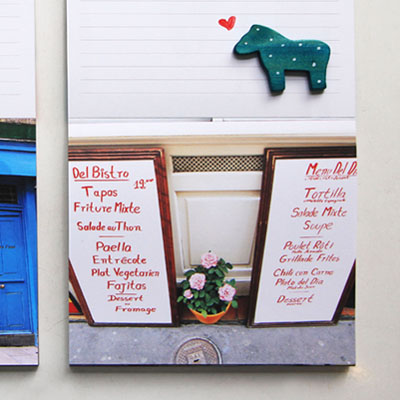 Del Bistro
19.00
Tapas
Friture Mixte
Salade au Thon
Paella
Entrécote
Plat Vegetarien
Fajitas
Dessert
ou
Fromage
Menu Del Dia
Tortilla
Salade Mixte
Soupe
Poulet Rôti
Grillade Frites
Chili con Carne
Plato del Dia
Dessert